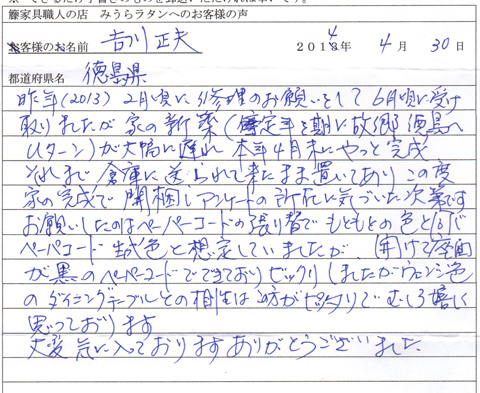 籐家具職人の店 みうらラタンへのお客様の声
お客様のお名前 吉川 正夫 2014年 4月 30日
都道府県名 徳島県
昨年(2013) 2月頃に修理のお願いをして 6月頃に受け
取りましたが 家の新築(定年を期に故郷徳島へ
Uターン)が大幅に遅れ 本年4月末にやっと完成
それまで倉庫に送られて来たまま置いてあり この度
家の完成で開梱しアンケートの所在に気づいた次第です
お願いしたのはペーパーコードの張り替で もともとの色と同じ
ペーパコード 生成色と想定していましたが、開けて座面
が黒のペーパーコードでできておりビックリしましたがウェンジ色
のダイニングテーブルとの相性は 方がピッタリで むしろ嬉しく
思っております
大変気に入っております ありがとうございました